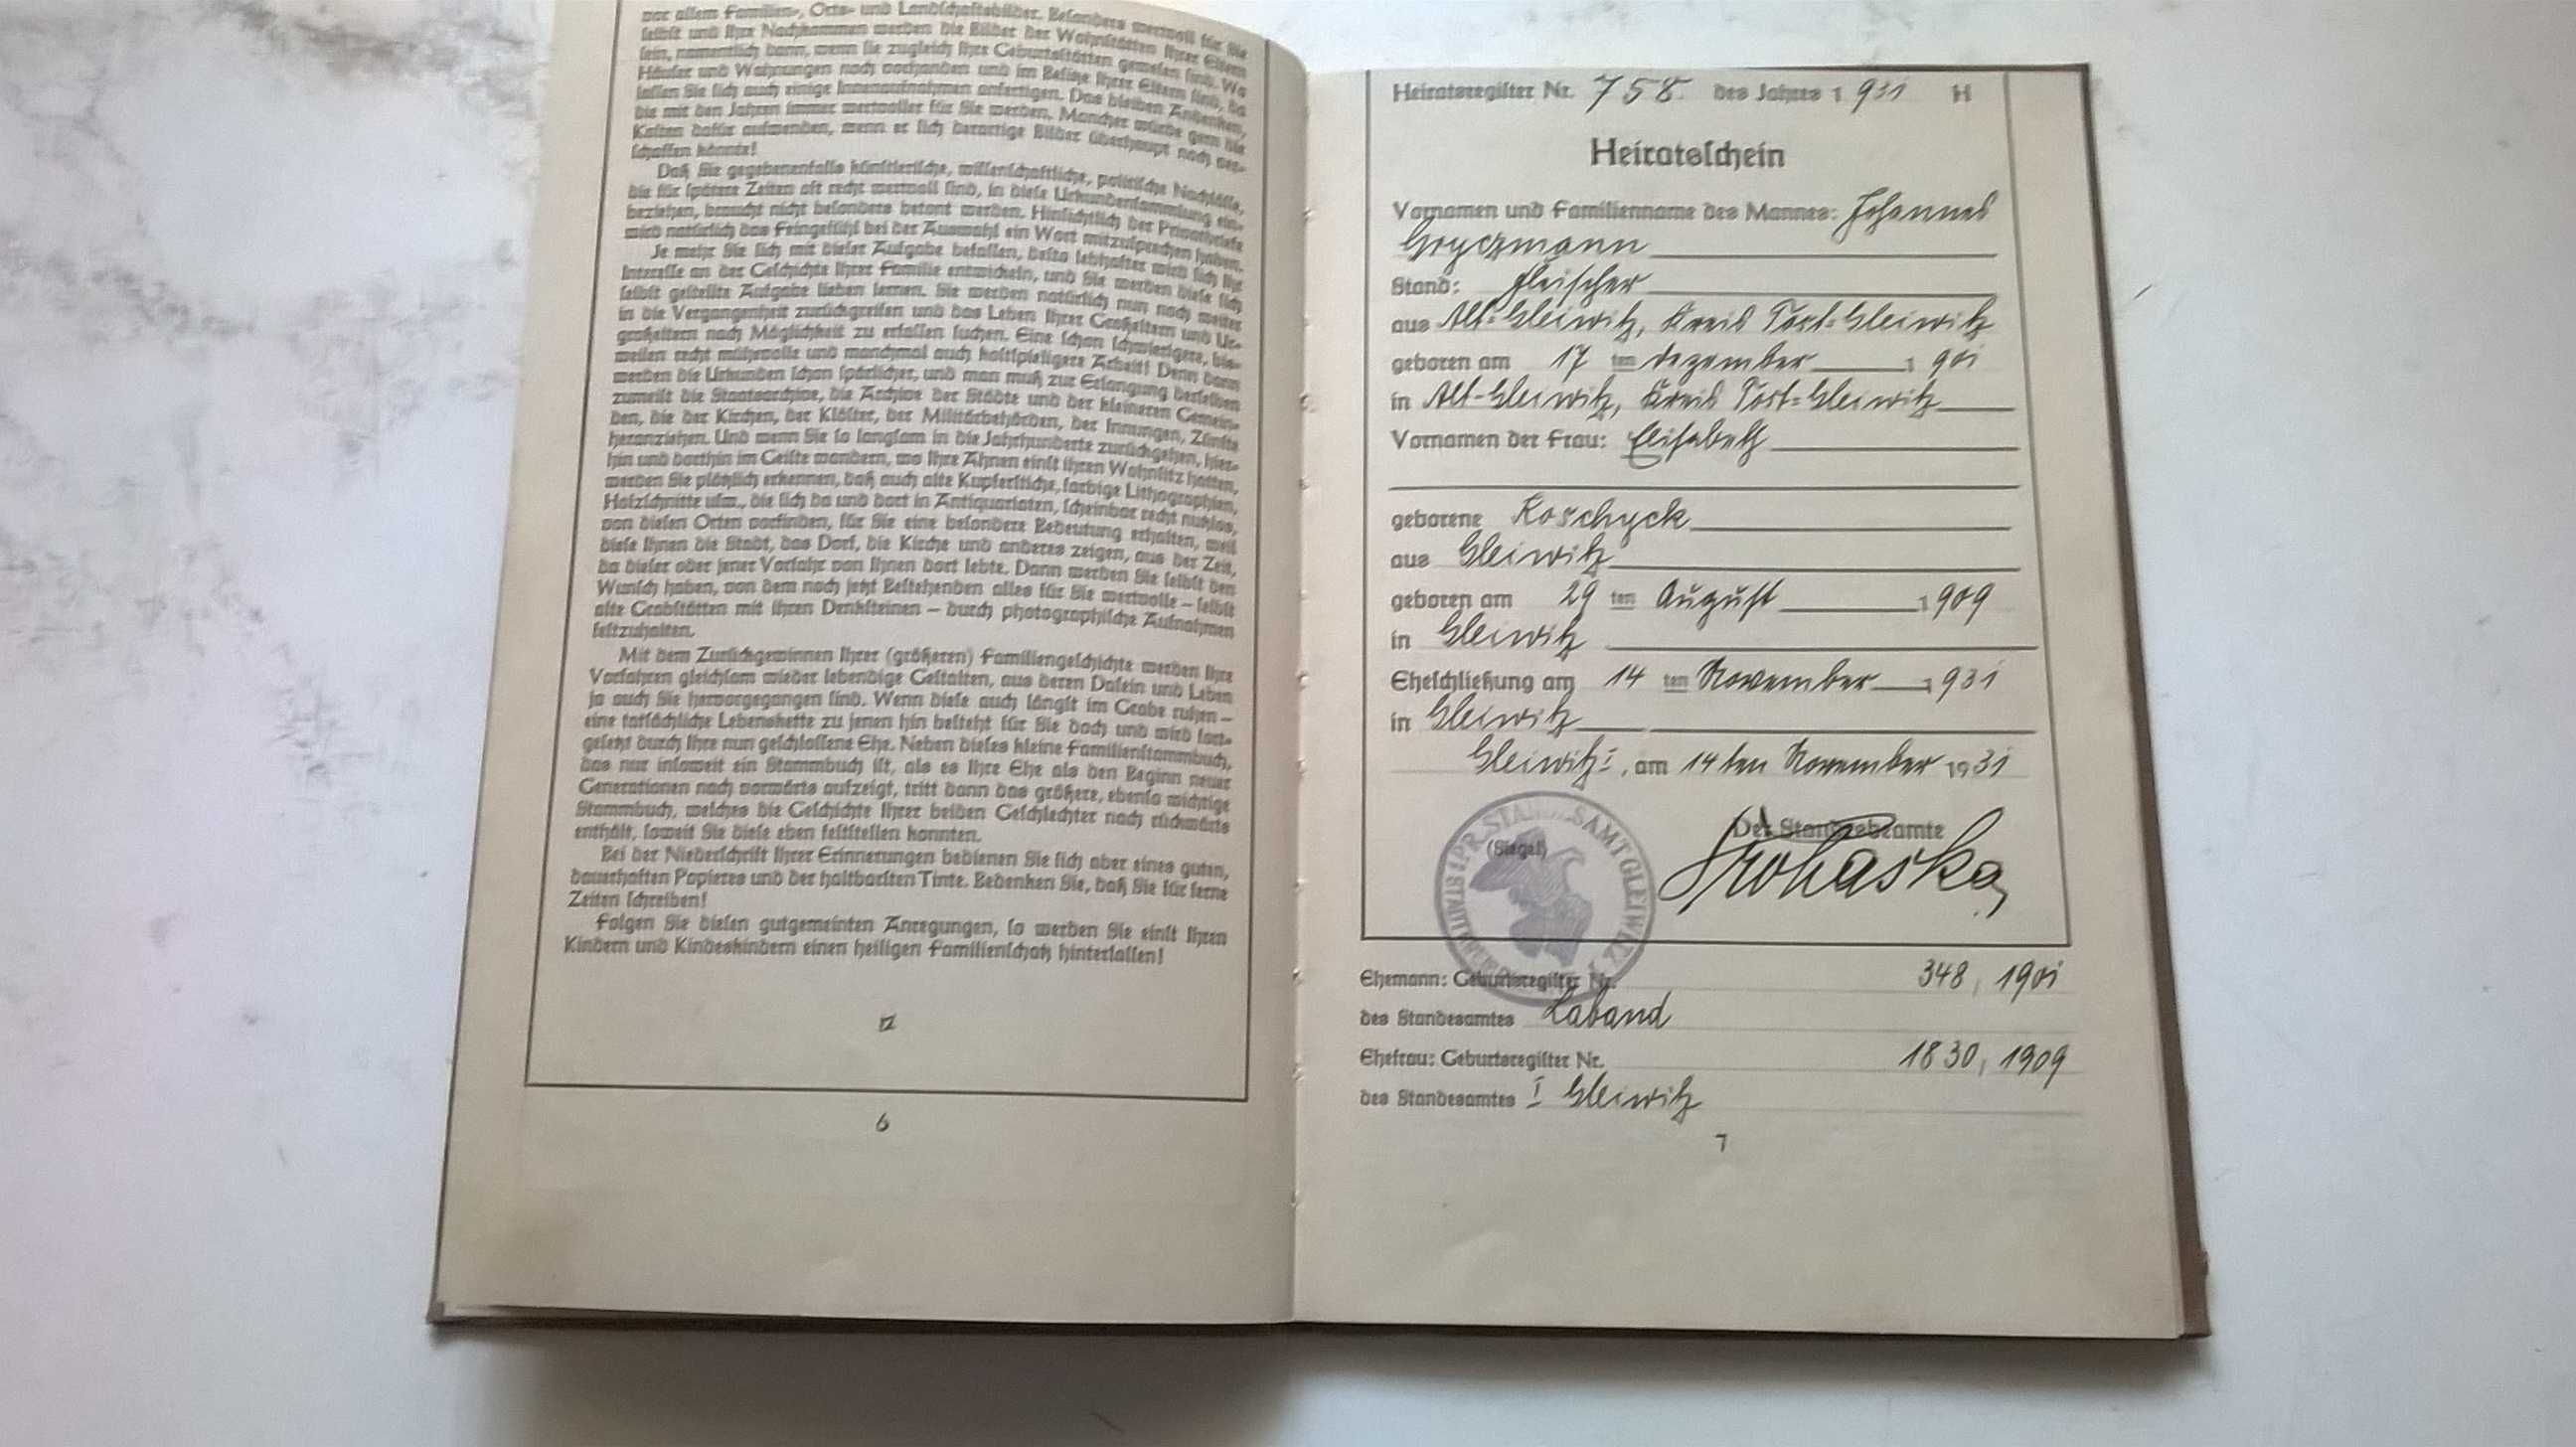 vor allem Familien-, Orts- und Landschaftsbilder. Besonders wertvoll für Sie
selbst und Ihre Nachkommen werden die Bilder der Wohnstätten Ihrer Eltern
sein, namentlich dann, wenn sie zugleich Ihre Geburtsstätten gewesen sind. Wo
Häuser und Wohnungen noch vorhanden und im Besitze Ihrer Eltern sind, da
lassen Sie sich auch einige Innenaufnahmen anfertigen. Das bleiben Andenken,
die mit den Jahren immer wertvoller für Sie werden. Mancher würde gern die
Kosten dafür aufwenden, wenn er sich derartige Bilder überhaupt noch ver-
schaffen könnte!
Daß Sie gegebenenfalls künstlerische, wissenschaftliche, politische Nachlässe,
die für spätere Zeiten oft recht wertvoll sind, in diese Urkundensammlung ein-
beziehen, braucht nicht besonders betont werden. Hinsichtlich der Privatbriefe
wird natürlich das Feingefühl bei der Auswahl ein Wort mitzusprechen haben.
Je mehr Sie sich mit dieser Aufgabe befassen, desto lebhafter wird sich Ihr
Interesse an der Geschichte Ihrer Familie entwickeln, und Sie werden diese sich
selbst gestellte Aufgabe lieben lernen. Sie werden natürlich nun noch weiter
in die Vergangenheit zurückgreifen und das Leben Ihrer Großeltern und Ur-
großeltern nach Möglichkeit zu erfassen suchen. Eine schon schwierigere, bis-
weilen recht mühevolle und manchmal auch kostspieligere Arbeit! Denn dann
werden die Urkunden schon spärlicher, und man muß zur Erlangung derselben
zumeist die Staatsarchive, die Archive der Städte und der kleineren Gemein-
den, die der Kirchen, der Klöster, der Militärbehörden, der Innungen, Zünfte
heranziehen. Und wenn Sie so langsam in die Jahrhunderte zurückgehen, hier-
hin und dorthin im Geiste wandern, wo Ihre Ahnen einst ihren Wohnsitz hatten,
werden Sie plötzlich erkennen, daß auch alte Kupferstiche, farbige Lithographien,
Holzschnitte usw., die sich da und dort in Antiquariaten, scheinbar recht nutzlos,
von diesen Orten vorfinden, für Sie eine besondere Bedeutung erhalten, weil
diese Ihnen die Stadt, das Dorf, die Kirche und anderes zeigen, aus der Zeit,
da dieser oder jener Vorfahr von Ihnen dort lebte. Dann werden Sie selbst den
Wunsch haben, von dem noch jetzt Bestehenden alles für Sie wertvolle – selbst
alte Grabstätten mit ihren Denksteinen – durch photographische Aufnahmen
festzuhalten.
Mit dem Zurückgewinnen Ihrer (größeren) Familiengeschichte werden Ihre
Vorfahren gleichsam wieder lebendige Gestalten, aus deren Dasein und Leben
ja auch Sie hervorgegangen sind. Wenn diese auch längst im Grabe ruhen –
eine tatsächliche Lebenskette zu jenen hin besteht für Sie doch und wird fort-
gesetzt durch Ihre nun geschlossene Ehe. Neben dieses kleine Familienstammbuch,
das nur insoweit ein Stammbuch ist, als es Ihre Ehe als den Beginn neuer
Generationen nach vorwärts aufzeigt, tritt dann das größere, ebenso wichtige
Stammbuch, welches die Geschichte Ihrer beiden Geschlechter nach rückwärts
enthält, soweit Sie diese eben feststellen konnten.
Bei der Niederschrift Ihrer Erinnerungen bedienen Sie sich aber eines guten,
dauerhaften Papieres und der haltbarsten Tinte. Bedenken Sie, daß Sie für ferne
Zeiten schreiben!
Folgen Sie diesen gutgemeinten Anregungen, so werden Sie einst Ihren
Kindern und Kindeskindern einen heiligen Familienschatz hinterlassen!
6
Heiratsregister Nr. 758 des Jahres 1931 H
Heiratsschein
Vornamen und Familienname des Mannes: Johannes
Gryczmann
Stand: Fleischer
aus Alt-Gleiwitz, Kreis Tost-Gleiwitz
geboren am 17ten Dezember 1901
in Alt-Gleiwitz, Kreis Tost-Gleiwitz
Vornamen der Frau: Elisabeth
geborene Koschyck
aus Gleiwitz
geboren am 29ten August 1909
in Gleiwitz
Eheschließung am 14ten November 1931
in Gleiwitz
Gleiwitz I, am 14ten November 1931
Der Standesbeamte
(Siegel)
PR. STANDESAMT GLEIWITZ
Ehemann: Geburtsregister Nr. 348, 1901
des Standesamtes Laband
Ehefrau: Geburtsregister Nr. 1830, 1909
des Standesamtes I Gleiwitz
7